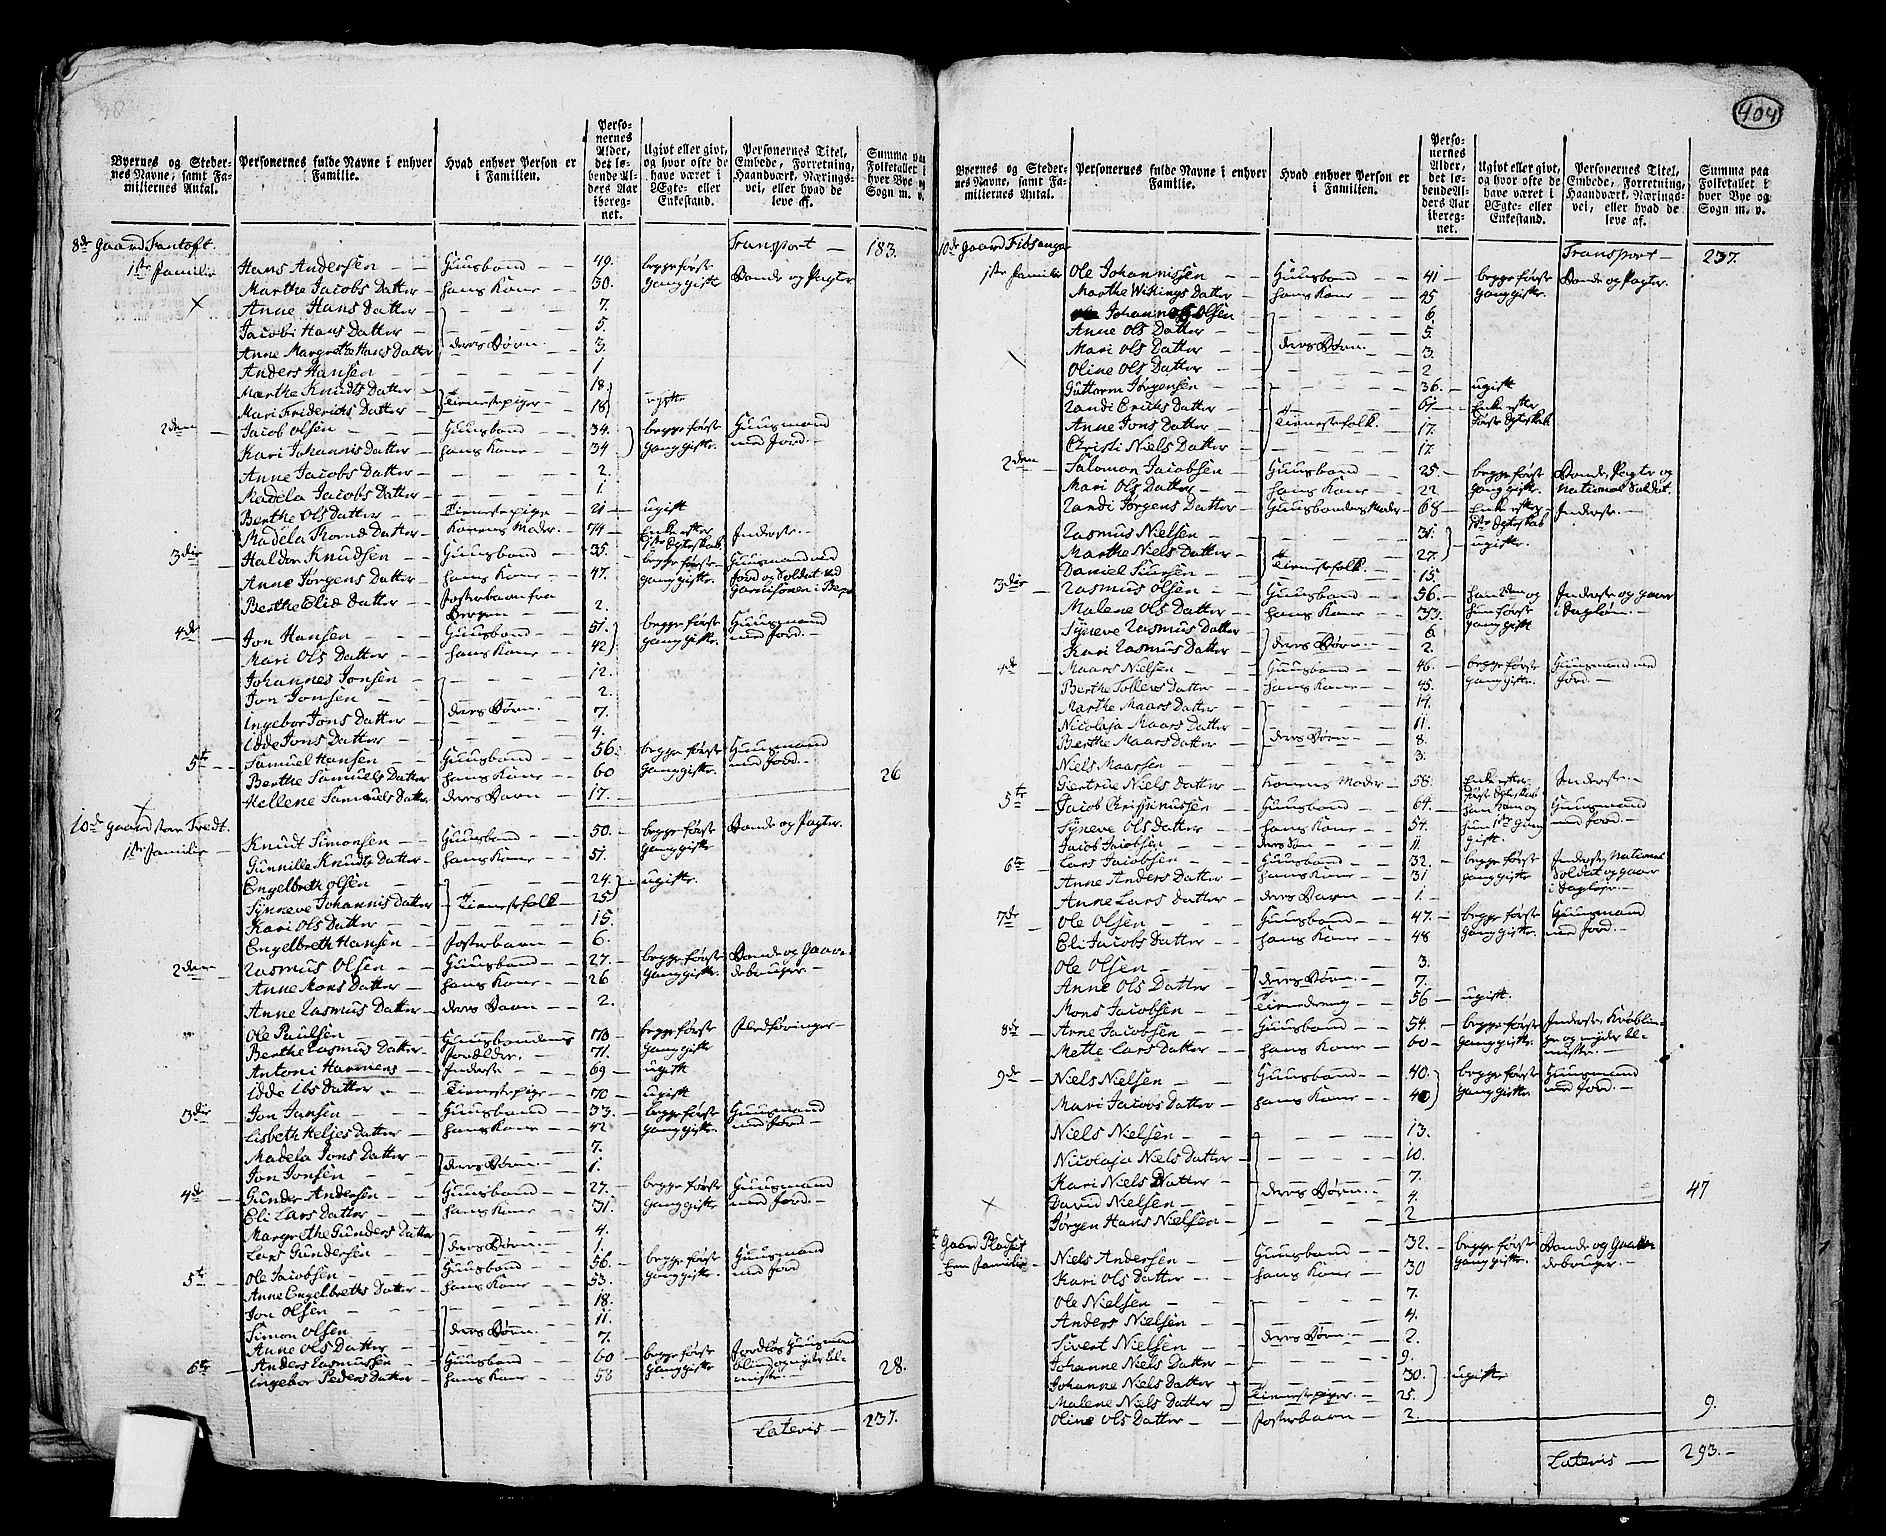 404
Byernes og Steder-
nes Navne, samt Fa-
miliernes Antal.
Personernes fulde Navne i enhver
Familie.
Hvad enhver Person er
i Familien.
Perso-
nernes
Alder,
det lø-
bende Al-
ders Aar
iberegnet.
Ugivt eller givt,
og hvor ofte de
have været i
Ægte- eller
Enkestand.
Personernes Titel,
Embede, Forretning,
Haandværk, Nærings-
vei, eller hvad de
leve af.
Summa paa
Folketallet i
hver Bye og
Sogn m. v.
8de Gaard Fantoft. Transport — 183.
1ste Familie Hans Andersen — Huusbond — 49. begge første Bonde og Pagter
Marthe Jacobs Datter — hans Kone — 30. Gang gifte
Anne Hans Datter — 7.
Jacobi Hans Datter — 5.
Anne Margrethe Hans Datter deres Børn. 3.
Anders Hansen — 1
Marthe Knudts Datter — 18
Mari Friderichs Datter — Tienestepiger — 18 ugifte
2den Jacob Olsen — Huusbond — 34. begge første Huusmand
Kari Johannis Datter — hans Kone — 34 Gang gifte. med Jord. —
Anne Jacobs Datter — 2.
Madela Jacobs Datter — 1.
Berthe Ols Datter — Tienestepige — 21 — ugift
Madela Datter — Konens Moder. — 74 — Enke efter Inderste. —
1ste Egteskab
3die Haldor Knudsen — Huusbond — 35. begge første Huusmand med
Anne Jørgens Datter — hans Kone — 47. Gang gifte. Jord og Soldat ved
Garnisonen i Bergen
Berthe Elid Datter — Fosterbarn fra 2.
Bergen
4de Jon Hansen — Huusbond — 51. begge første Huusmand
Mari Ols Datter — hans Kone — 42 Gang gifte. med Jord. —
Johannes Jonsen — 12.
Jon Jonsen — 2.
Ingebor Jons Datter — deres Børn. 7.
Idde Jons Datter — 4.
5te Samuel Hansen — Huusbond — 56. begge første Huusmand
Berthe Samuels Datter hans Kone — 60 Gang gifte. med Jord. — 26
Hellene Samuels Datter deres Barn — 17.
10de Gaard Tvedt.
1ste Familie — Knud Simonsen — Huusbond — 50. begge første Bonde og Pagter.
Gunnille Knudts Datter — hans Kone — 51. Gang gifte
Engelbreth Olsen — 24. ugifte.
Synneve Johannis Datter — Tienestefolk — 25
Kari Ols Datter — 15.
Engelbreth Hansen — Fosterbarn — 6.
2den Rasmus Olsen — Huusbond — 27. begge første Bonde og Gaard-
Anne Mons Datter — hans Kone — 26 Gang gifte. debruger. —
Anne Rasmus Datter — deres Barn — 2.
Ole Paulsen — Huusbondens 70 begge første
Berthe Rasmus Datter — Forældre. — 71. Gang gifte
Antoni Harmens — Inderste — 69 — ugift
Idde Ibs Datter — Tienestepige — 70 — ugift
3die Jon Jansen — Huusbond — 33. begge første Huusmand
Lisbeth Helges Datter — hans Kone — 42 Gang gifte. med Jord. —
Madela Jons Datter — 7.
Jon Jonsen — deres Børn. 1.
4de Gunder Andersen — Huusbond — 27. begge første Huusmand
Eli Lars Datter — hans Kone — 31. Gang gifte. med Jord. —
Margrethe Gunders Datter 4.
Lars Gundersen — deres Børn. — 1.
5te Ole Jacobsen — Huusbond — 56. begge første Huusmand
Anne Engelbreths Datter — hans Kone — 53. Gang gifte. med Jord
Jon Olsen — 18.
Simon Olsen — deres Børn. 11.
Anne Ols Datter — 7.
6te Anders Rasmussen — Huusbond — 60 — begge første Jordløs Huusmand
Ingebor Peders Datter — hans Kone — 58 Gang gifte. blind og nyder al-
misse. — 28.
Lateris — 237.
Byernes og Steder-
nes Navne, samt Fa-
miliernes Antal.
Personernes fulde Navne i enhver
Familie.
Hvad enhver Person er
i Familien.
Perso-
nernes
Alder,
det lø-
bende Al-
ders Aar
iberegnet.
Ugivt eller givt,
og hvor ofte de
have været i
Ægte- eller
Enkestand.
Personernes Titel,
Embede, Forretning,
Haandværk, Nærings-
vei, eller hvad de
leve af.
Summa paa
Folketallet i
hver Bye og
Sogn m. v.
10de Gaard Fiøsanger Transport — 237.
1ste Familie Ole Johannissen — Huusbond — 41 — begge første Bonde og Pagter.
Marthe Wikings Datter — hans Kone — 45 Gang gifte.
Johannes Olsen — 6.
Anne Ols Datter — 5.
Mari Ols Datter — deres Børn. — 3.
Oline Ols Datter — 2
Guttorm Jørgensen — 36. — ugift
Randi Erichs Datter — 61 — Enke efter
Anne Jons Datter — Tienestefolk. — 17. første Egteskab
Christi Niels Datter — 17.
2den — Salomon Jacobsen — Huusbond — 25. begge først Bonde, Pagter og
Mari Ols Datter — hans Kone — 22 Gang gifte. National Soldat.
Randi Jørgens Datter — Huusbondens Moder — 68 — Enke efter Inderste. —
1ste Egteskab
Rasmus Nielsen — 31. ugifte.
Marthe Niels Datter — 27.
Daniel Siursen — Tienestefolk. — 15.
3die Rasmus Olsen — Huusbond — 56. han 2den og Inderste og gaaer
Malene Ols Datter — hans Kone — 33. hun første i Dagløn. —
Synneve Rasmus Datter — 6. Gang gift
Kari Rasmus Datter — deres Børn. — 2.
4de Maars Nielsen — Huusbond — 46. begge første Huusmand med
Berthe Tollevs Datter — hans Kone — 45. Gang gifte. Jord. —
Marthe Maars Datter — 14.
Nicolaja Maars Datter — 11.
Berthe Maars Datter — deres Børn — 8.
Niels Maarsen — 3.
Giertrüe Niels Datter — Konens Moder — 58. Enke efter Inderste. —
første Egteskab
5te Jacob — Huusbond — 64. han 2den og Huusmand
Synneve Ols Datter — hans Kone — 54. hun 1ste Gang med Jord. —
Jacob Jacobsen — deres Søn — 11. gift.
6te Lars Jacobsen — Huusbond — 32. — begge første Inderste, National
Anne Anders Datter — hans Kone — 31 Gang gifte Soldat og gaaer
Anne Lars Datter — deres Barn — 1. i Dagleje. —
7de Ole Olsen — Huusbond — 47. — begge første Huusmand
Eli Jacobs Datter — hans Kone — 48 Gang gifte med Jord. —
Ole Olsen — 3.
Anne Ols Datter — deres Børn. — 7.
Mons Jacobsen — Tienestedreng — 56 — ugift.
8de Arne Jacobsen — Huusbond — 54. begge første Inderste, Krøblin-
Mette Lars Datter — hans Kone — 60 — Gang gifte. ge og nyder al-
misse. —
9de Niels Nielsen — Huusbond — 40. begge første Huusmand
Mari Jacobs Datter — hans Kone — 40 Gang gifte med Jord. —
Niels Nielsen — 13.
Nicolaja Niels Datter — 10.
Kari Niels Datter — 7.
David Nielsen — deres Børn. — 4. 47
Jørgen Hans Nielsen — 2
Gaard
Een Familie Niels Andersen — Huusbond — 32. begge første Bonde og Gaar-
Kari Ols Datter — hans Kone — 30 Gang gifte. debruger. —
Ole Nielsen — 7.
Anders Nielsen — 4.
Sivert Nielsen — deres Børn — 2.
Johanne Niels Datter — 9.
Johanne Niels Datter — 30. ugifte
Malene Niels Datter — Tienestepiger. — 25.
Oline Ols Datter — Fosterbarn — 2. 9.
Lateris — 293. —